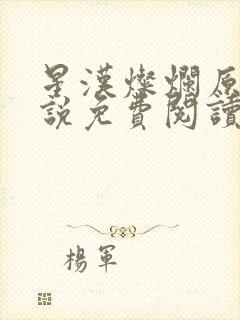 星漢燦爛原
說免費閱讀
楊軍